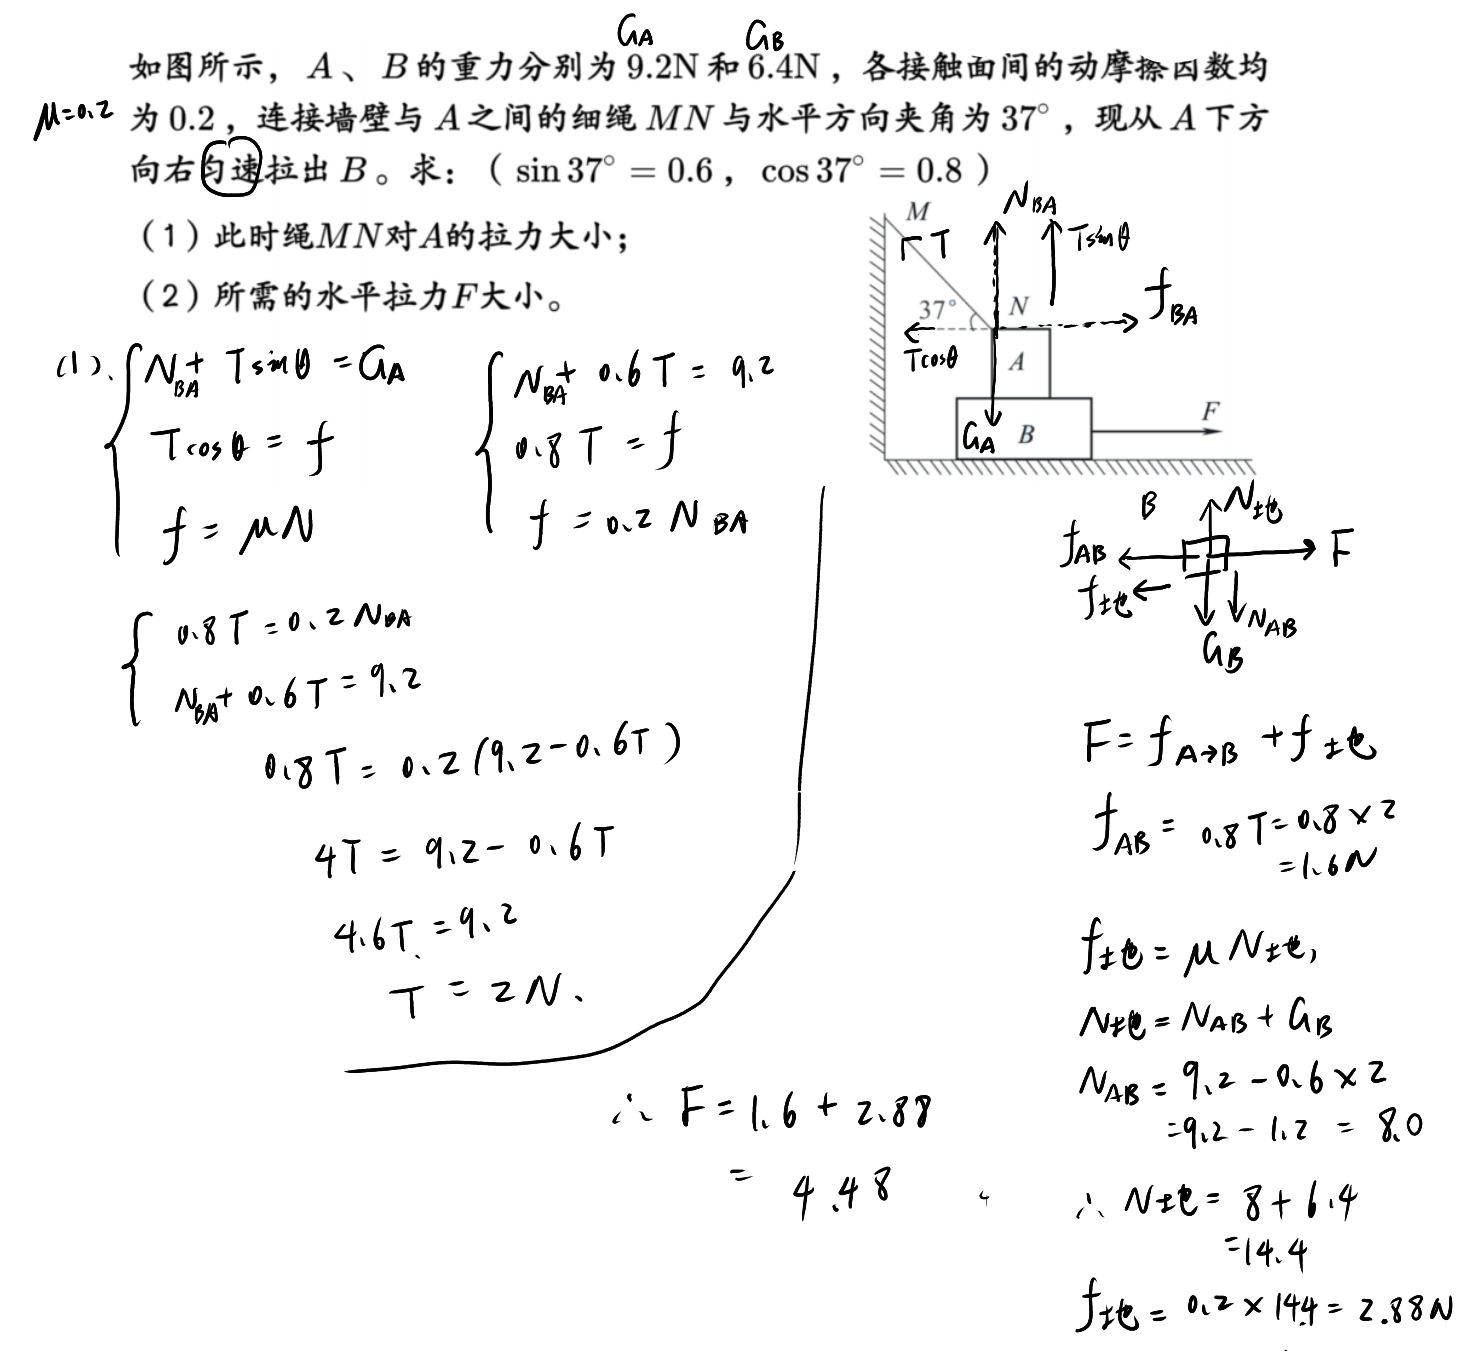 G_A G_B
如图所示，A、B的重力分别为9.2N和6.4N，各接触面间的动摩擦因数均
μ=0.2 为0.2，连接墙壁与A之间的细绳MN与水平方向夹角为37°，现从A下方
向右匀速拉出B。求：（sin37°=0.6，cos37°=0.8）
（1）此时绳MN对A的拉力大小；
（2）所需的水平拉力F大小。
N_BA
M
T
Tsinθ
37°
N
f_BA
Tcosθ
A
F
G_A
B
(1)、
N_BA + Tsinθ = G_A
Tcosθ = f
f = μN
N_BA + 0.6T = 9.2
0.8T = f
f = 0.2N_BA
0.8T = 0.2N_BA
N_BA + 0.6T = 9.2
0.8T = 0.2(9.2-0.6T)
4T = 9.2 - 0.6T
4.6T = 9.2
T = 2N.
B
N_地
f_AB
F
f_地
N_AB
G_B
F = f_A→B + f_地
f_AB = 0.8T = 0.8×2
= 1.6N
f_地 = μN_地,
N_地 = N_AB + G_B
N_AB = 9.2 - 0.6×2
= 9.2 - 1.2 = 8.0
∴ N_地 = 8 + 6.4
= 14.4
f_地 = 0.2×14.4 = 2.88N
∴ F = 1.6 + 2.88
= 4.48